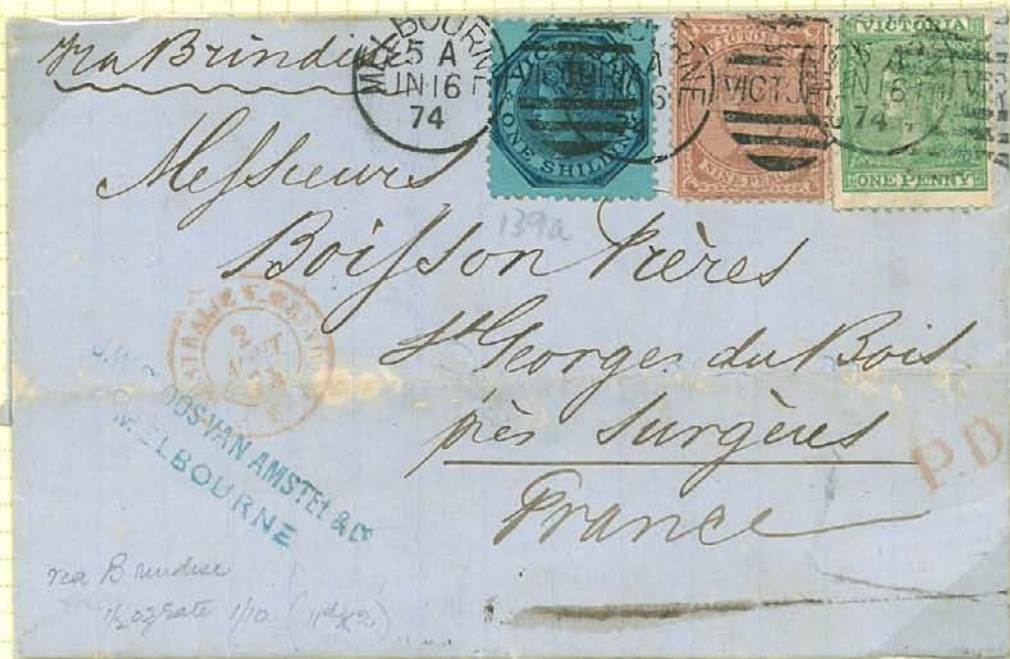 Via Brindisi
MELBOURNE
5 A
JN 16
74
VICTORIA
ONE SHILLING
VICTORIA
NINE PENCE
VICTORIA
ONE PENNY
VICTORIA
Messieurs
139a
Boisson Frères
St Georges du Bois
près Surgères
France
P.D.
VAN AMSTEL & Co
MELBOURNE
via Brindisi
1/2 oz rate 1/10 (11d x 2)